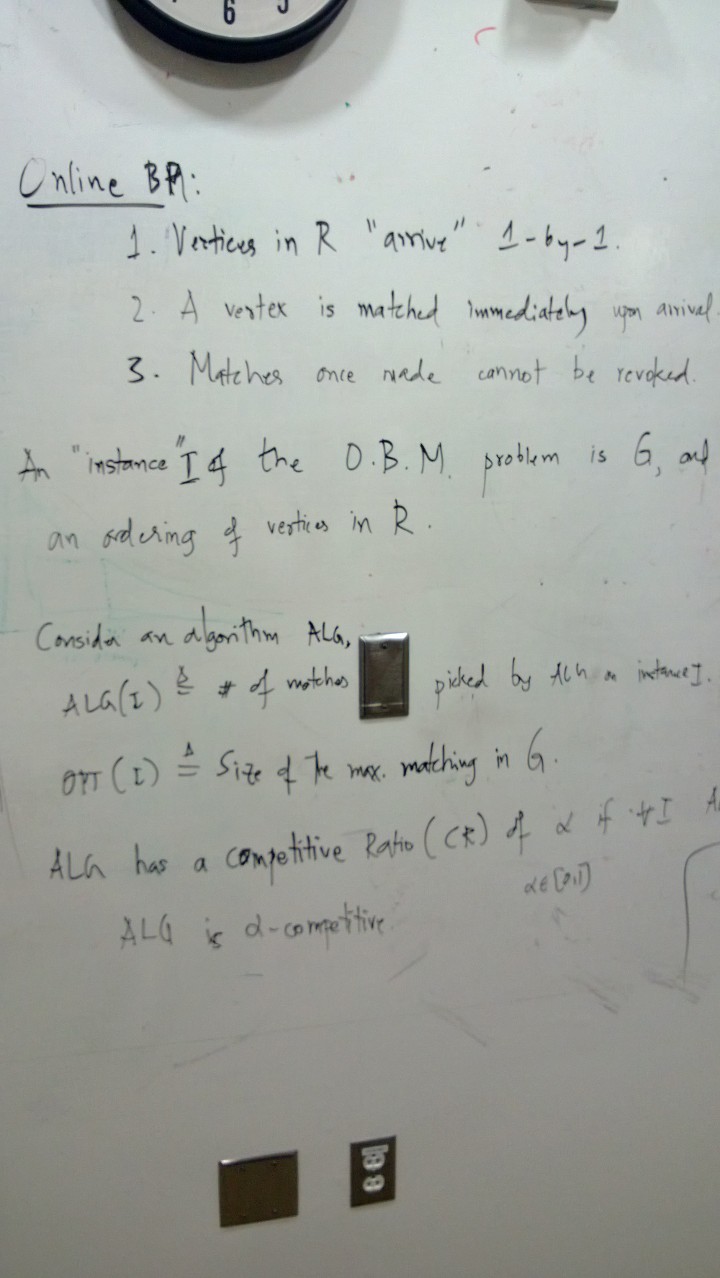 6 5
Online BM:
1. Vertices in R "arrive" 1-by-1.
2. A vertex is matched immediately upon arrival.
3. Matches once made cannot be revoked.
An "instance" I of the O.B.M. problem is G, and
an ordering of vertices in R.
Consider an algorithm ALG,
ALG(I) ≜ # of matches picked by ALG on instance I.
OPT(I) ≜ Size of the max. matching in G.
ALG has a competitive Ratio (CR) of α if ∀I
α∈[0,1]
ALG is α-competitive.